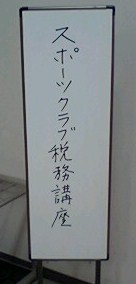 スポーツクラブ税務講座